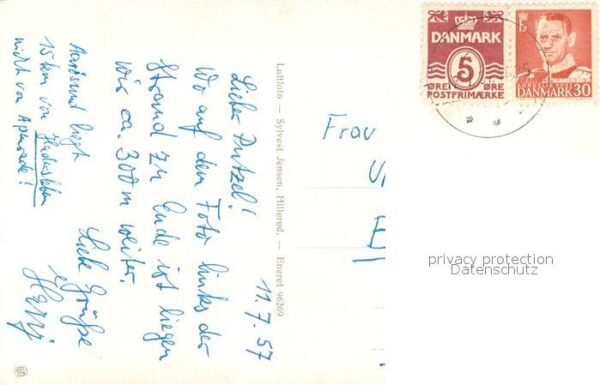 11.7.57
Lieber Putzel!
Wo auf dem Foto links der
Strand zu Ende ist liegen
wir ca. 300 m weiter.
Liebe Grüße
Aarösund liegt
15 km von Hadersleben
nicht von Apenrade!
Luftfoto — Sylvest Jensen, Hillerød. — Eneret 96269
Frau
DANMARK
5
ØRE ØRE
POSTFRIMÆRKE
DANMARK 30
privacy protection
Datenschutz